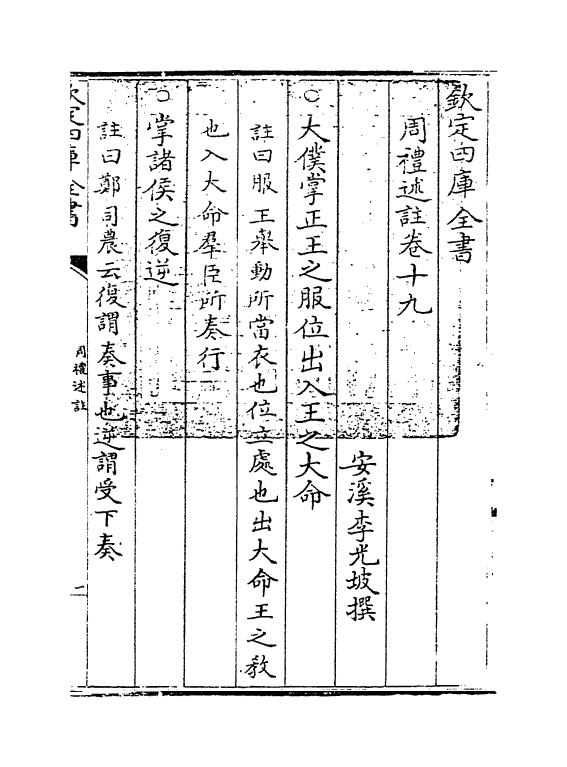 欽定四庫全書
周禮述註卷十九
安溪李光坡撰
○大僕掌正王之服位出入王之大命
註曰服王舉動所當衣也位立處也出大命王之教
也入大命羣臣所奏行
○掌諸侯之復逆
註曰鄭司農云復謂奏事也逆謂受下奏
欽定四庫全書
周禮述註
一